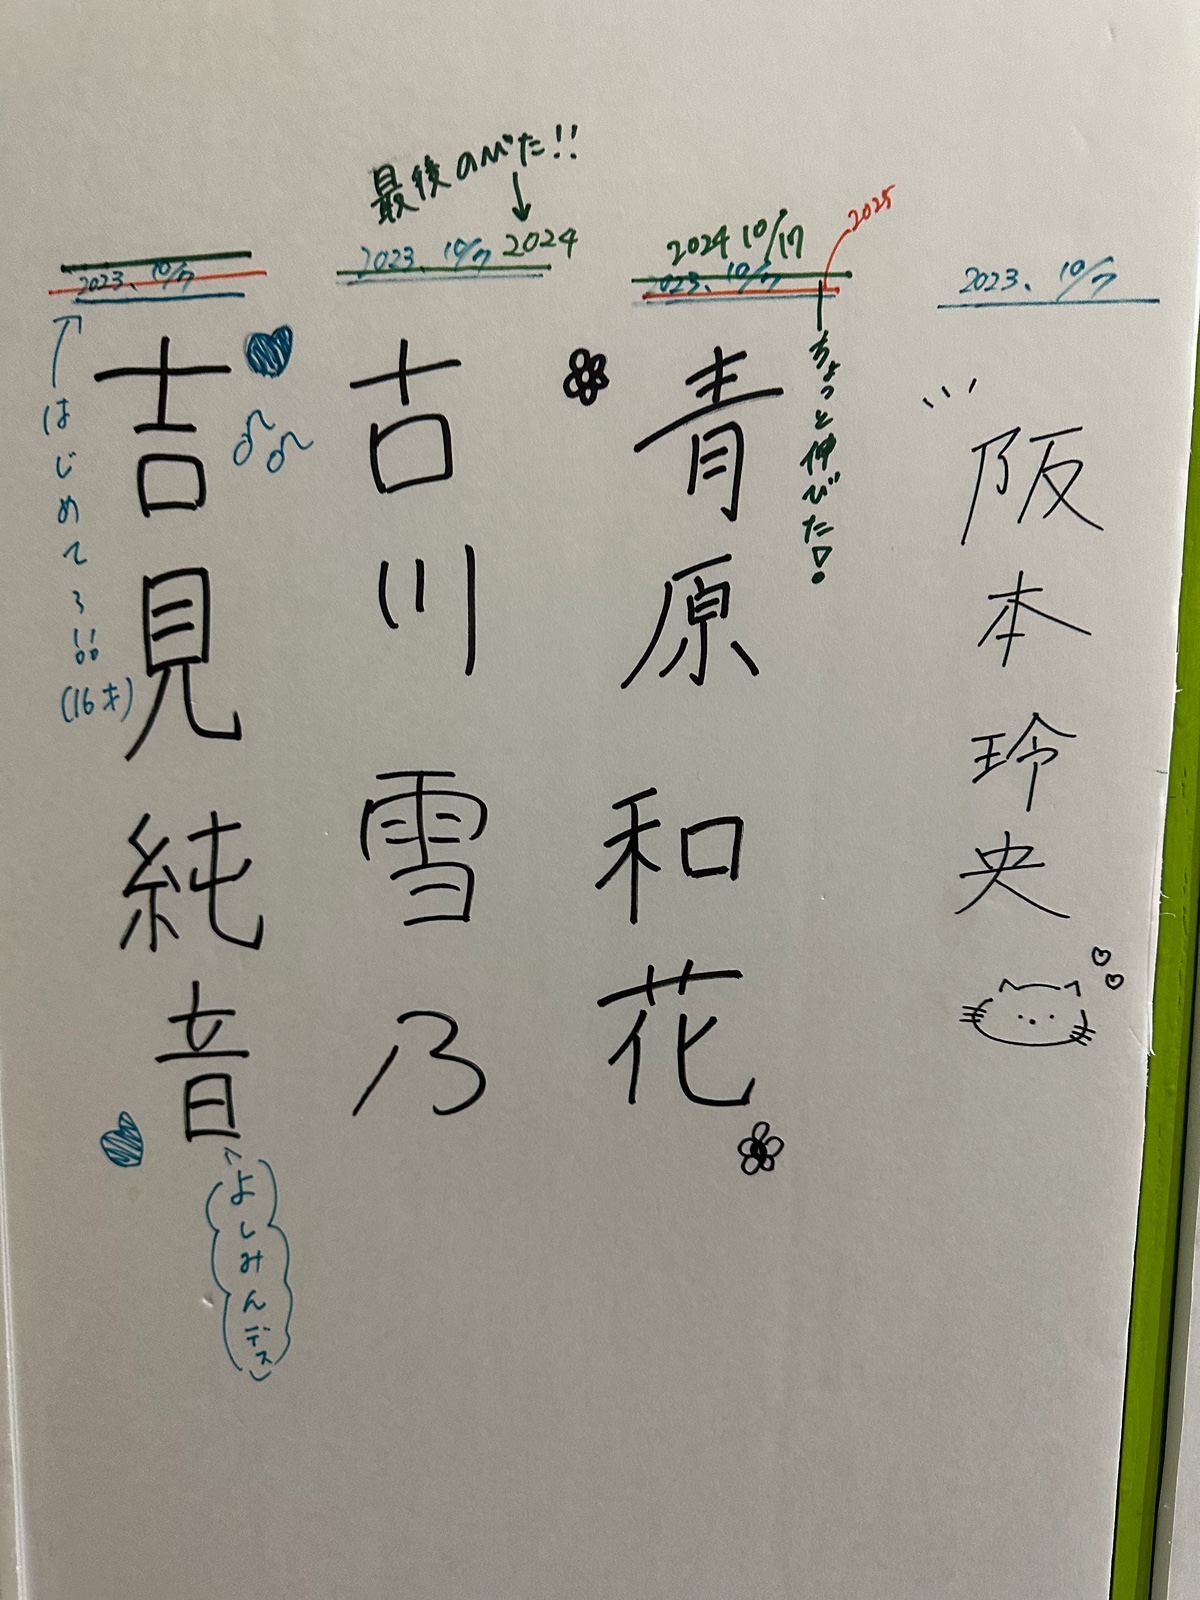 最後のびた!!
2023、10/7 2024
2024 10/17
2023、10/7
2025
2023、10/7
2023、10/7
阪本玲央
ちょっと伸びた!
青原和花
古川雪乃
吉見純音
はじめてる!!
(16才)
よしみんデス